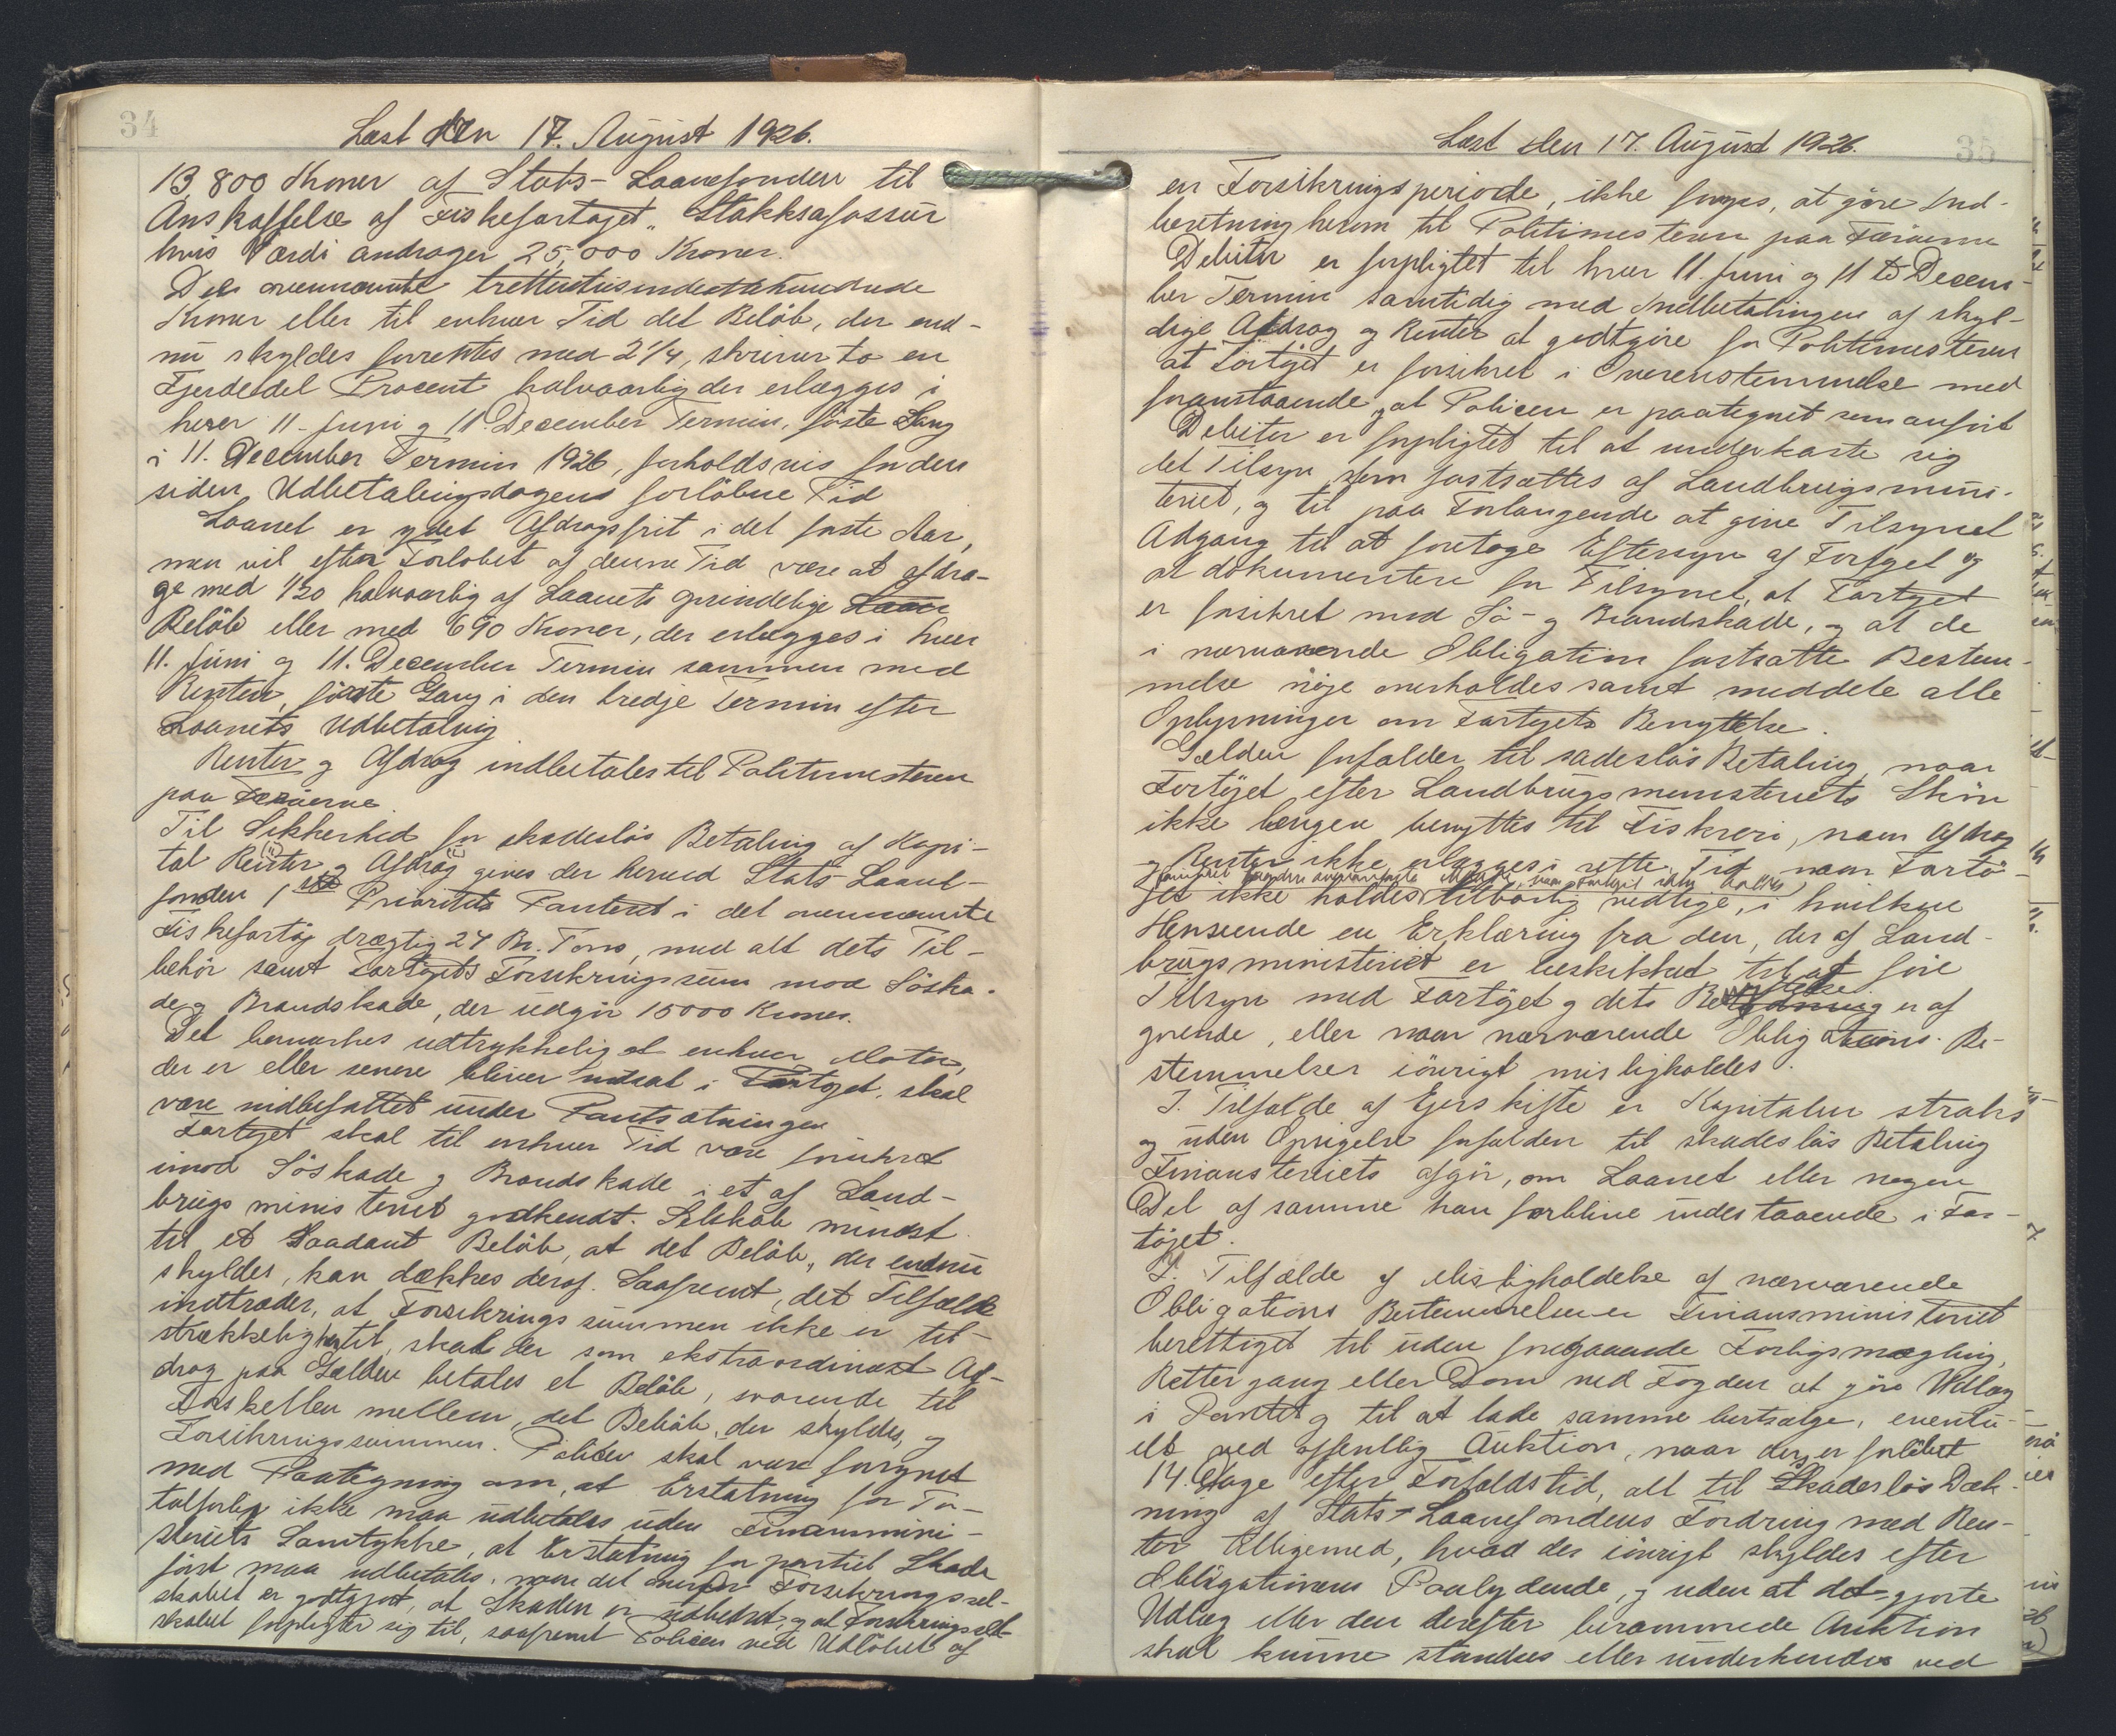 34
Læst den 17. August 1926.
13,800 Kroner af Stats-Laanefonden til
Anskaffelse af Fiskefartøjet "Stakksafossur
hvis Værdi andrager 25,000 Kroner.
Den ovennævnte trettentusindottehundrede
Kroner eller til enhver Tid det Beløb, der end-
nu skyldes forrentes med 2 1/4, skriver to en
Fjerdedel Procent halvaarlig der erlægges i
hver 11. Juni og 11. December Termin, første Gang
i 11. December Termin 1926, forholdsvis for den
siden Udbetalingsdagens forløbne Tid
Laanet er ydet Afdragsfrit i det første Aar,
men vil efter Forløbet af denne Tid være at afdra-
ge med 1/20 halvaarlig af Laanets oprindelige Laan
Beløb eller med 690 Kroner, der erlægges i hver
11. Juni og 11. December Termin sammen med
Renten, første Gang i den tredje Termin efter
Laanets Udbetaling
Renter og Afdrag indbetales til Politimesteren
paa Færøerne.
Til Sikkerhed for skadesløs Betaling af Kapi-
tal Renter og Afdrag gives der herved Stats-Laane-
fonden 1ste Prioritets Panteret i det ovennævnte
Fiskefartøj drægtig 24 Br. Tons, med alt dets Til-
behør samt Fartøjets Forsikringssum mod Søska-
de og Brandskade, der udgør 15000 Kroner.
Det bemærkes udtrykkelig at enhver Motor,
der er eller senere bliver indsat i Fartøjet, skal
være indbefattet under Pantsætningen
Fartøjet skal til enhver Tid være forsikret
imod Søskade og Brandskade i et af Land-
brugsministeriet godkendt Selskab mindst
til et saadant Beløb, at det Beløb, der endnu
skyldes, kan dækkes deraf. Saafremt, det Tilfælde
indtræder, at Forsikringssummen ikke er til-
strækkelig hertil, skal der som ekstraordinært Af-
drag paa Gælden betales et Beløb, svarende til
Forskellen mellem det Beløb, der skyldes, og
Forsikringssummen. Policen skal være forsynet
med Paategning om, at Erstatning for To-
talforlis ikke maa udbetales uden Finansmini-
steriets Samtykke, at Erstatning for partiel Skade
først maa udbetales, naar det overfor Forsikringssel-
skabet er godtgjort, at Skaden er udbedret, og at Forsikringssel-
skabet forpligter sig til, saafremt Policen ved Udløbet af
35
Læst den 17. August 1926.
en Forsikringsperiode, ikke fornyes, at gøre Ind-
beretning herom til Politimesteren paa Færøerne
Debitor er forpligtet til hver 11. Juni og 11te Decem-
ber Termin samtidig med Indbetalingen af skyl-
dige Afdrag og Renter at godtgøre for Politimesteren
at Fartøjet er forsikret i Overenstemmelse med
foranstaaende, at Policen er paategnet som anført
Debitor er forpligtet til at underkaste sig
det Tilsyn, som fastsættes af Landbrugsmini-
teriet, og til paa Forlangende at give Tilsynet
Adgang til at foretage Eftersyn af Fartøjet og
at dokumentere for Tilsynet, at Fartøjet
er forsikret mod Sø- og Brandskade, og at de
i nærværende Obligation fastsatte Bestem-
melse nøje overholdes samt meddele alle
Oplysninger om Fartøjets Benyttelse.
Gælden forfalder til skadesløs Betaling naar
Fartøjet efter Landbrugsministeriets Skøn
ikke længer benyttes til Fiskeri, naar Afdrag
og Renter ikke erlægges i rette Tid naar Fartø-
jet ikke holdes tilbørlig vedlige, i hvilken
Henseende en Erklæring fra den, der af Land-
brugsministeriet er beskikket til at føre
Tilsyn med Fartøjet og dets Benyttelse er af
gørende, eller naar nærværende Obligations Be-
stemmelser iøvrigt misligholdes.
I. Tilfælde af Ejerskifte er Kapitalen straks
og uden Opsigelse forfalden til skadesløs Betaling
Finansteriets afgør, om Laanet eller nogen
Del af samme kan forblive indestaaende i Far-
tøjet.
I. Tilfælde af Misligholdelse af nærværende
Obligations Bestemmelser er Finansministeriet
berettiget til uden foregaaende Forligsmægling,
Rettergang eller Dom ved Fogden at gøre Udlæg
i Pantet og til at lade samme bortsælge, eventu-
elt ved offentlig Auktion, naar der er forløbet
14. Dage efter Forfaldstid, alt til Skadesløs Dæk-
ning af Stats-Laanefondens Fordring med Ren-
ter alligemed, hvad der iøvrigt skyldes efter
Obligationens Paalydende, og uden at det gjorte
Udlæg eller den derefter berammede Auktion
skal kunne standses eller underkendes ved